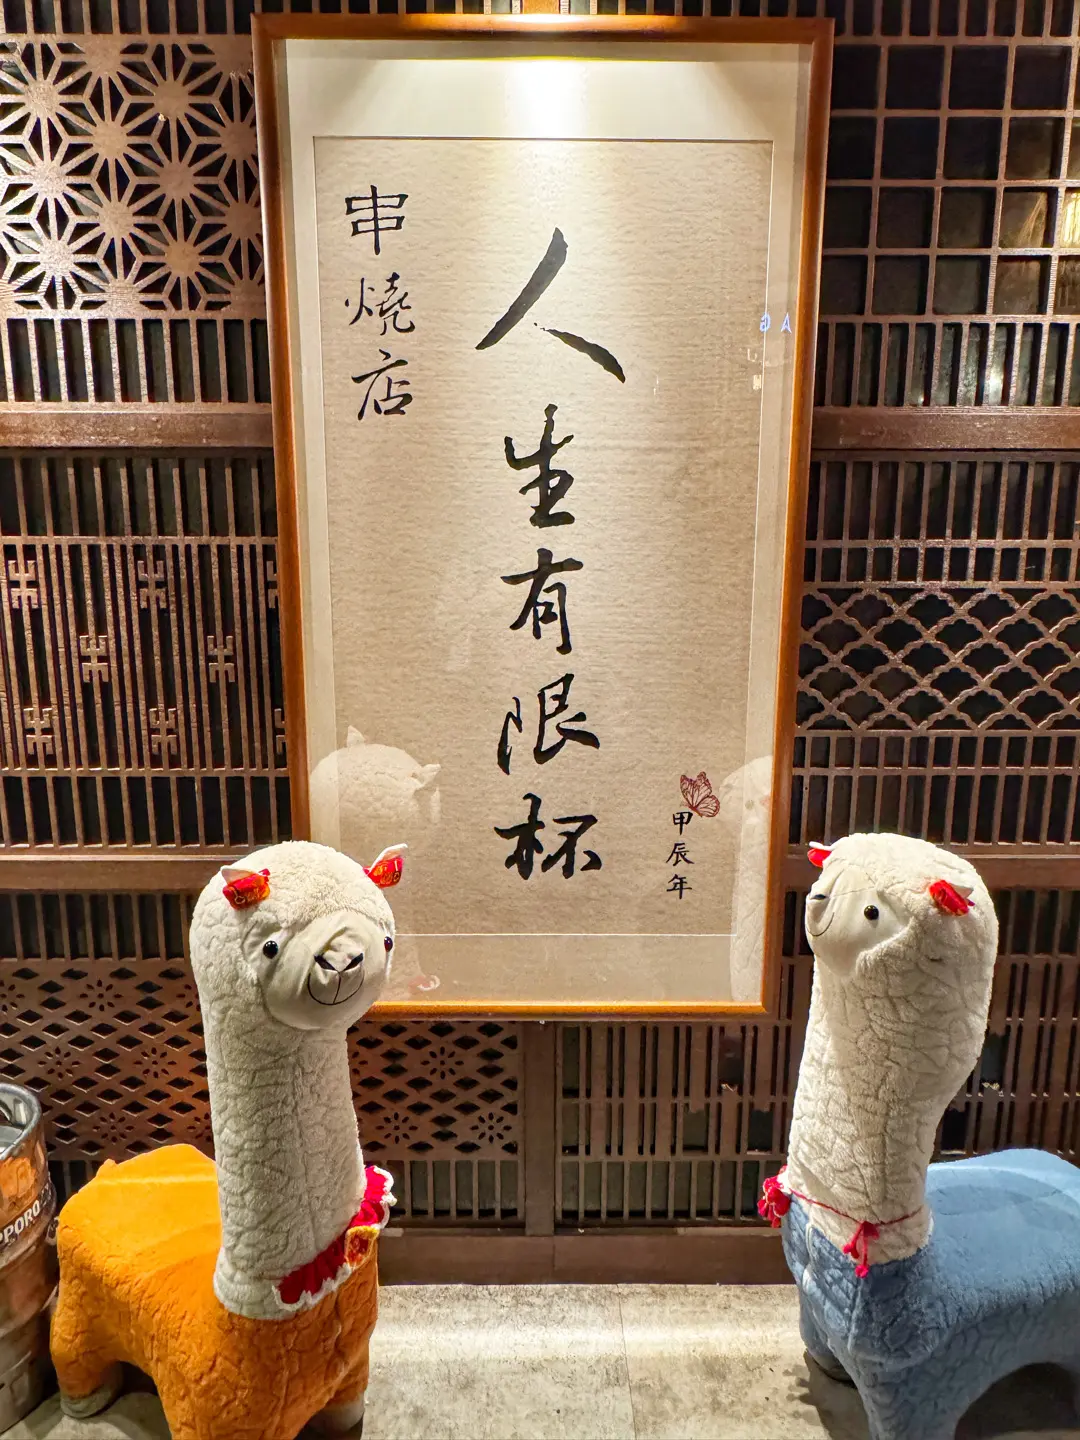 人生有限杯
串燒店
甲辰年
PPORO